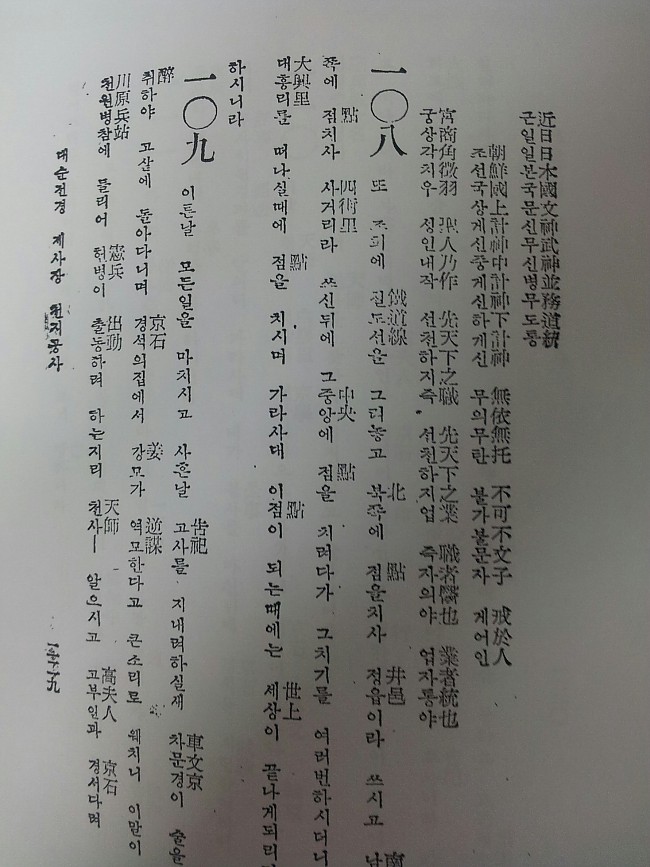 近日日本國文神武神並務道統
근일일본국문신무신병무도통
朝鮮國上計神中計神下計神 無依無托 不可不文子 戒於人
조선국상게신중게신하게신 무의무탁 불가불문자 게어인
宮商角徵羽 聖人乃作 先天下之職 先天下之業 職者醫也 業者統也
궁상각치우 성인내작 선천하지즉 선천하지업 즉자의야 업자통야
一〇八 또 조희에 鐵道線 철도선을 그려놓고 北 북쪽에 點 점을치사 井邑 정읍이라 쓰시고 南
쪽에 點 점치사 四街里 사거리라 쓰신뒤에 그 中央 중앙에 點 점을 치려다가 그치기를 여러번하시더니
大興里 대흥리를 떠나실때에 點 점을 치시며 가라사대 이 點 점이 되는때에는 世上 세상이 끝나게되리
하시니라
一〇九 이튼날 모든일을 마치시고 사흔날 告祀 고사를 지내려하실새 車文京 차문경이 술을
醉 취하야 고샅에 돌아다니며 京石 경석의집에서 姜 강모가 逆謀 역모한다고 큰소리로 웨치니 이말이
川原兵站 천원병참에 들리어 憲兵 헌병이 出動 출동하려 하는지라 天師 천사ㅣ 알으시고 高夫人 고부인과 京石
대순전경 제사장 천지공사